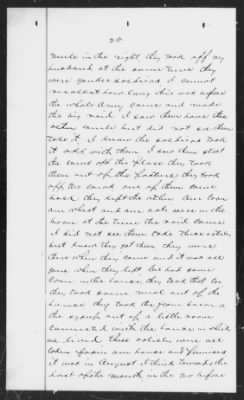 25
mule in the night they took off my
husband at the same time they
were yankee soldiers I cannot
recollect how long this was before
the whole Army came and made
the big raid I saw them have the
other mule but did not see them
take it. I know the soldiers took
it off with them I saw them shoot
the off the place they took
them out of the pasture they took
off two and one of them came
back they left the other Our corn
our wheat and our oats were in the
house at the time the raid came
I did not see them take these articles
but know they got them they were
there when they came and it was all
gone when they left We had some
corn in the house they took that too
they took some meat out of the
house they took the from
the syrup out of a little room
connected with the house in which
we lived These articles were all
taken from our house and premises
it was in August I think towards the
last of the month in the before